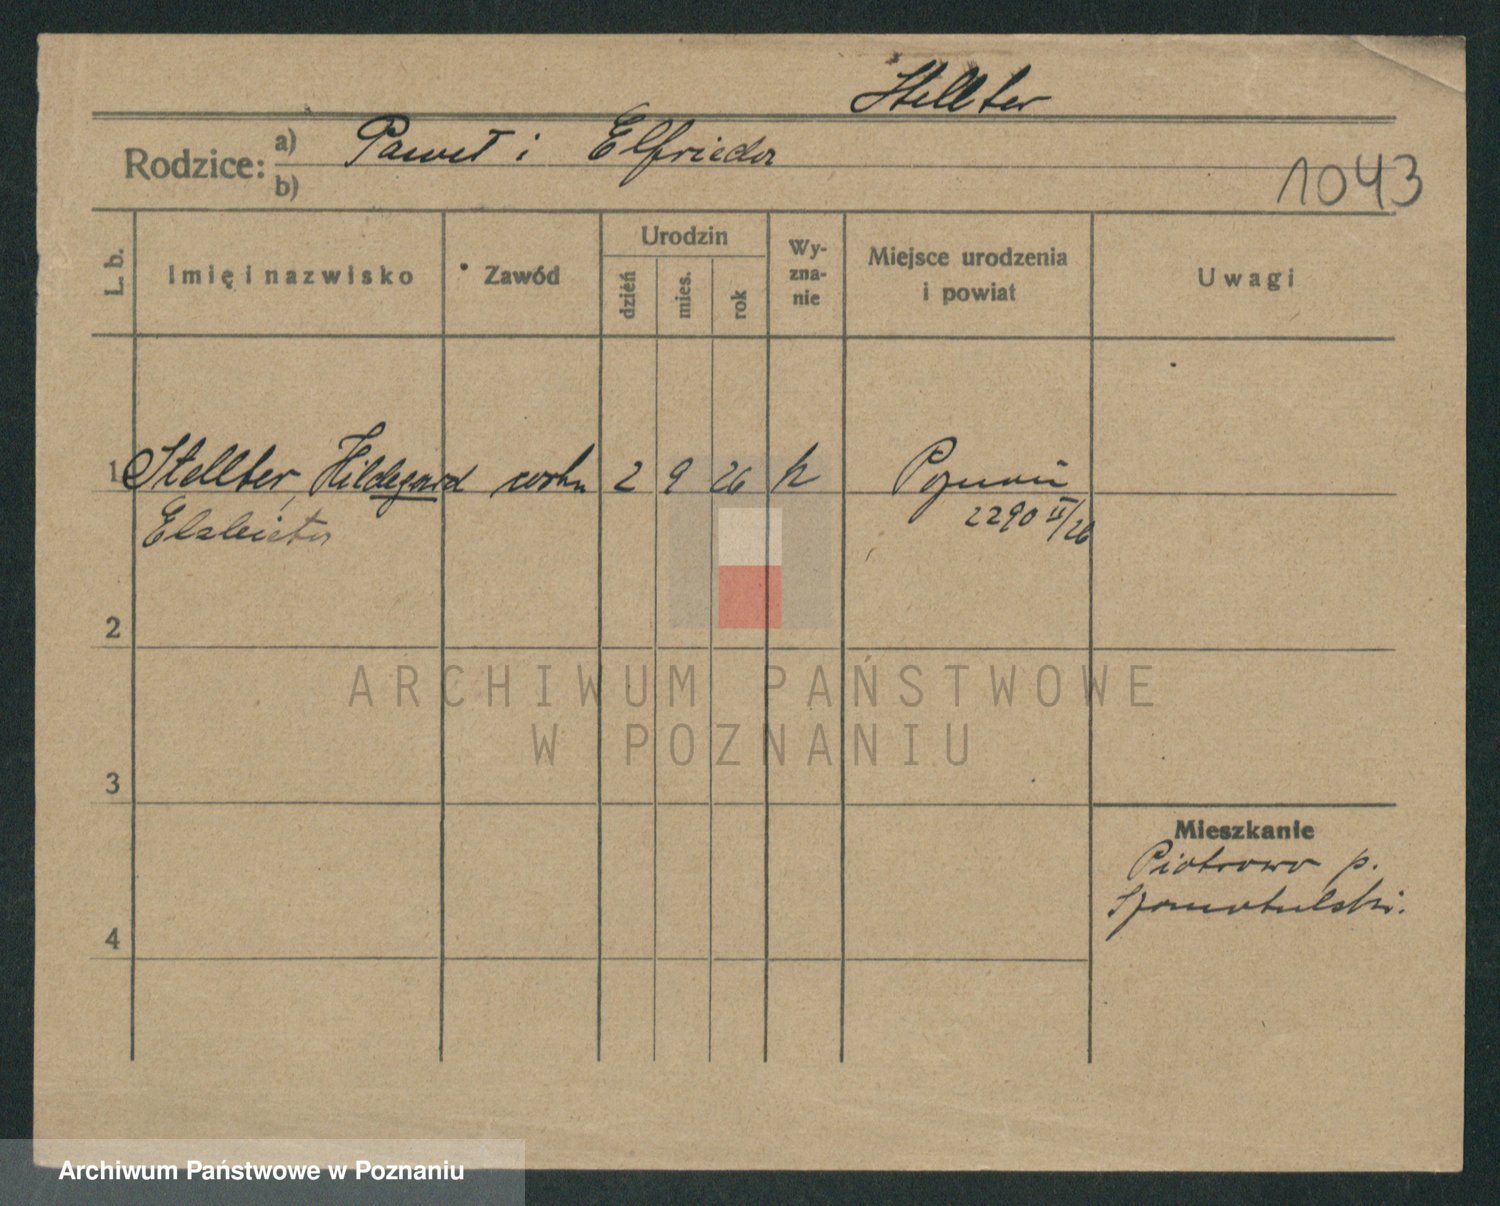 Stellter
Rodzice: a) Paweł i Elfrieda
b)
1043
L. b.
Imię i nazwisko
Zawód
Urodzin
dzień
mies.
rok
Wy-
zna-
nie
Miejsce urodzenia
i powiat
Uwagi
1 Stellter, Hildegard córka 2 9 26 k Poznań
Elzbieta 2290 II/26
2
3
4
Mieszkanie
Piotrowo p.
Szamotulski.
ARCHIWUM PAŃSTWOWE
W POZNANIU
Archiwum Państwowe w Poznaniu